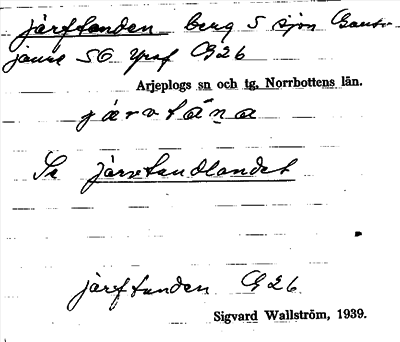 järftanden berg S sjön
jaure SO Graf G26
Arjeplogs sn och tg. Norrbottens län.
järvtäna
Se järvtandlandet
järftanden G26
Sigvard Wallström, 1939.